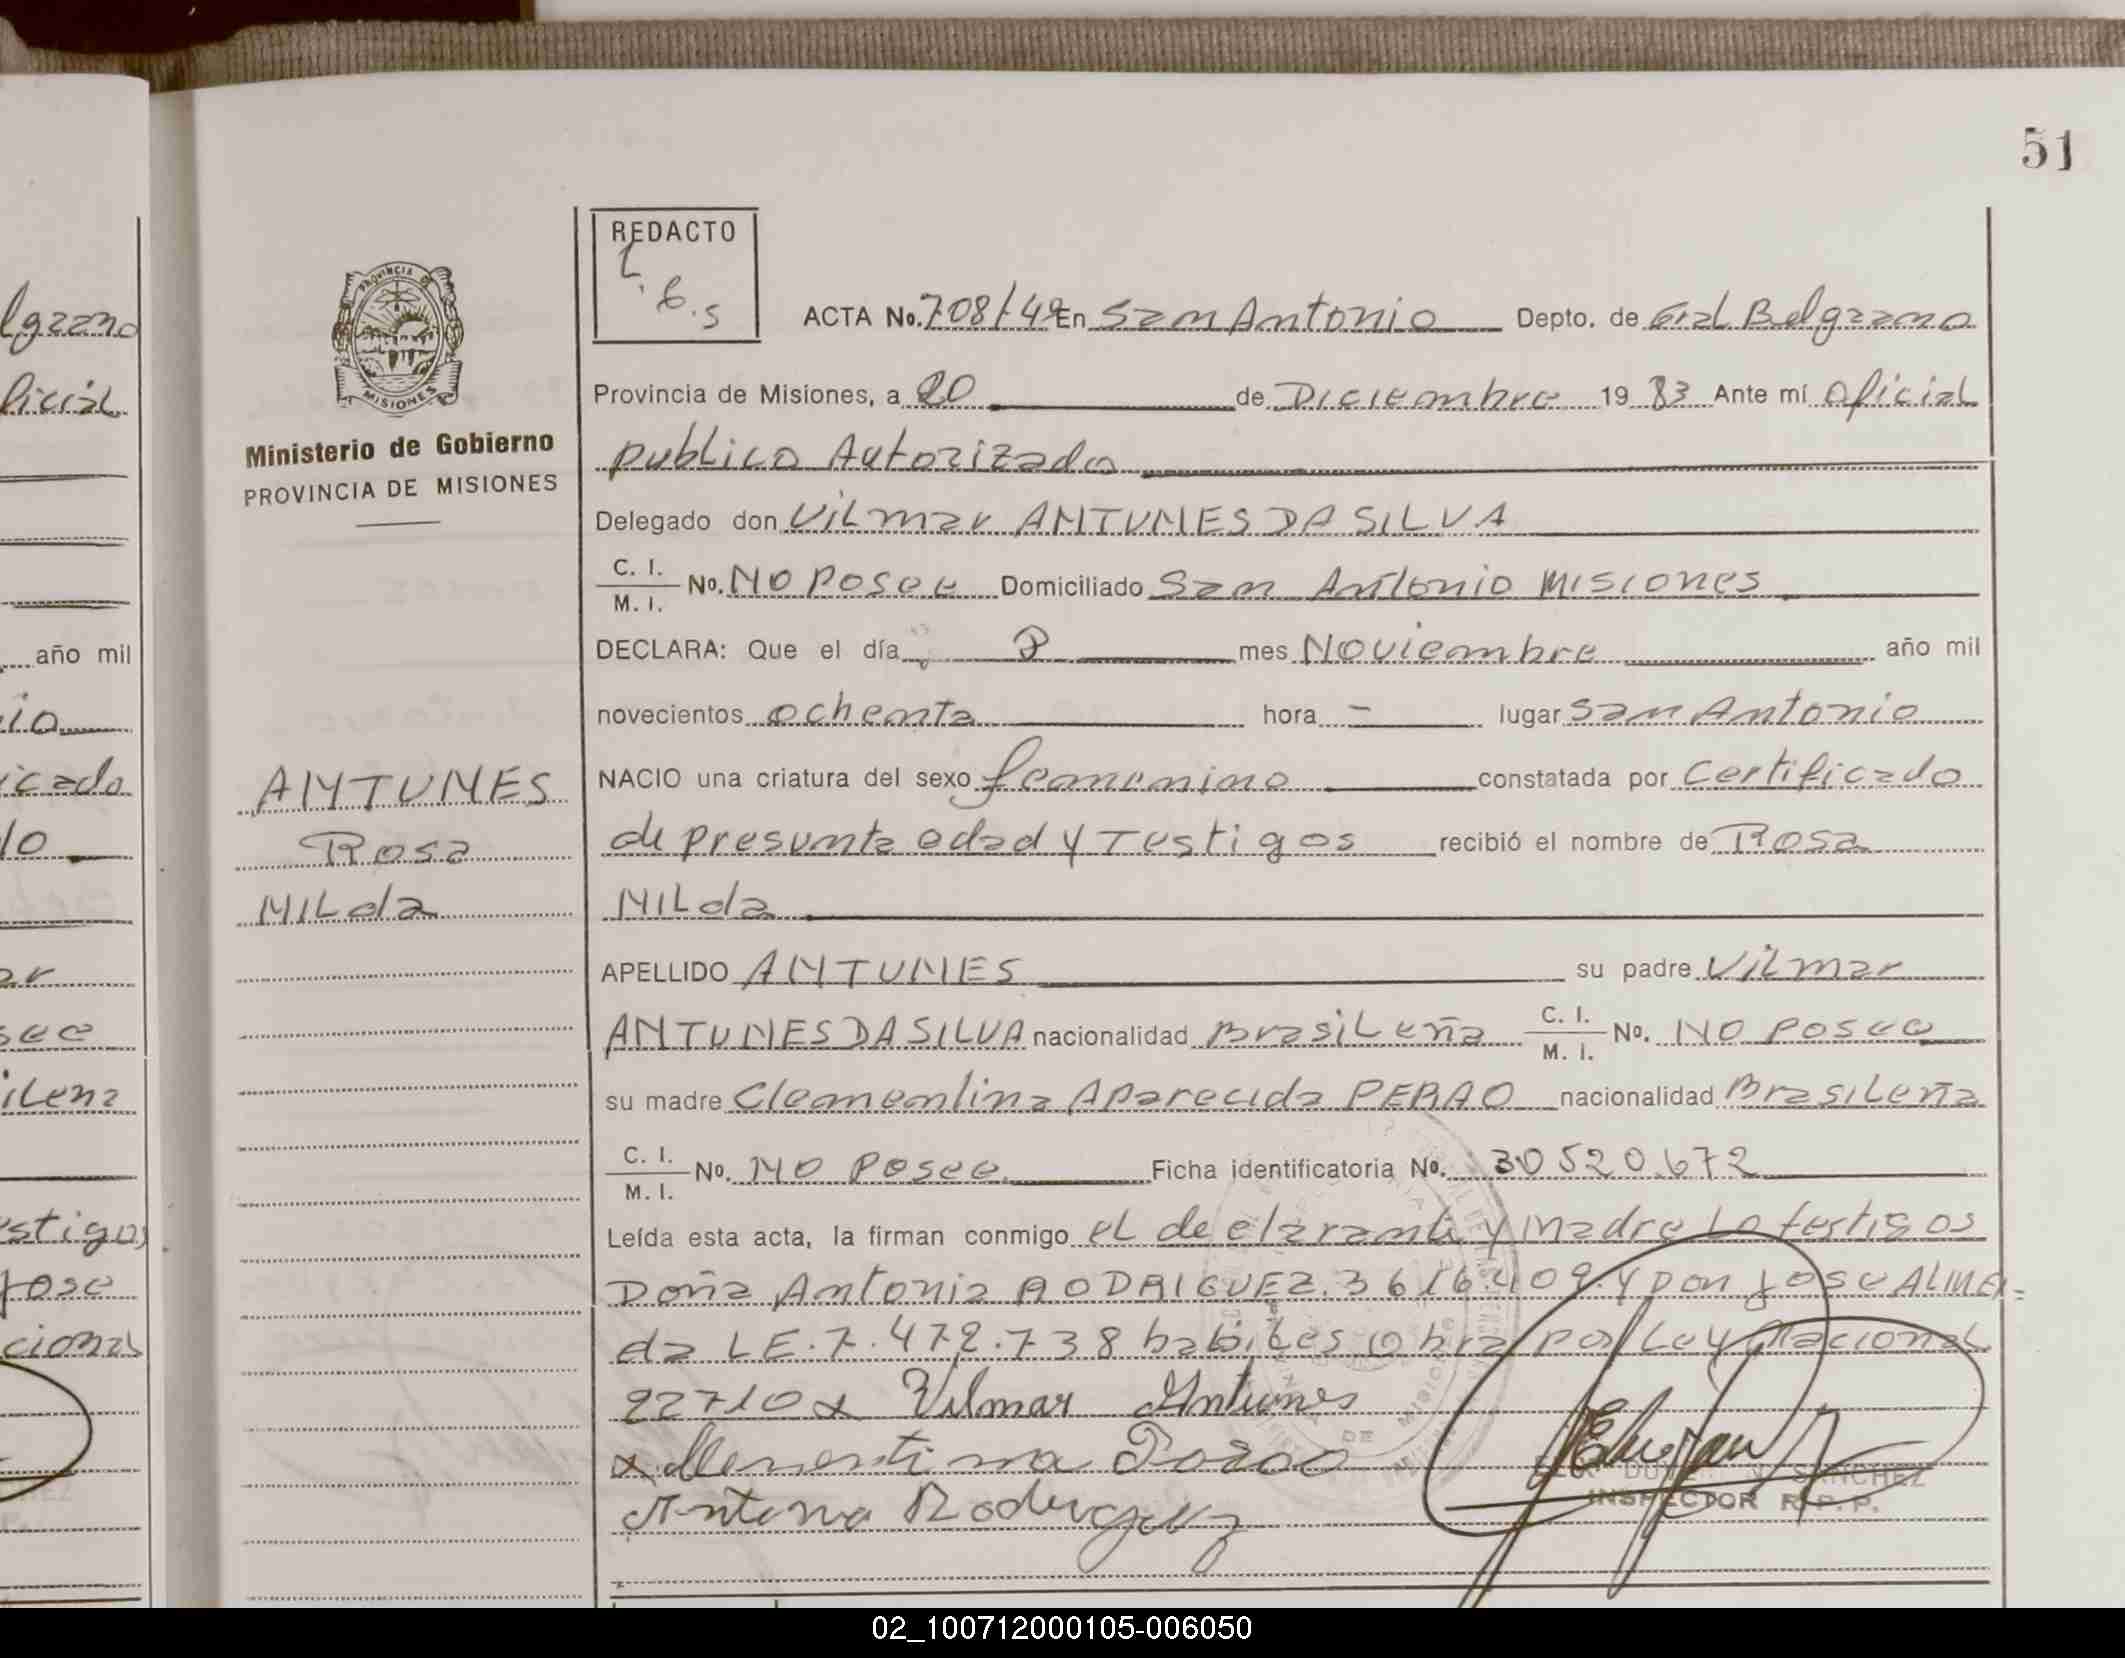 51
REDACTO
L.
B.S
ACTA No. 708/49 En San Antonio Depto. de Gral Belgrano
Provincia de Misiones, a 20 de Diciembre 19 83 Ante mí oficial
publico Autorizado
Delegado don Vilmar ANTUNES DA SILVA
C. I.
M. I. No. NO Posee Domiciliado San Antonio Misiones
DECLARA: Que el día 8 mes Noviembre año mil
novecientos ochenta hora - lugar San Antonio
NACIO una criatura del sexo femenino constatada por Certificado
de presunta edad y Testigos recibió el nombre de Rosa
NILda
APELLIDO ANTUNES su padre Vilmar
ANTUNES DA SILVA nacionalidad Brasileña C. I. M. I. No. NO Posee
su madre Clementina Aparecida PERAO nacionalidad Brasileña
C. I.
M. I. No. NO Posee Ficha identificatoria No. 30520.672
Leída esta acta, la firman conmigo el declarante y madre Lo testigos
Doña Antonia RODRIGUEZ. 3616.409. y Don Jose ALMEI-
da LE. 7.472.738 habiles obra por Ley Nacional
22710 x Vilmar Antunes
x Clementina
Antonia Rodriguez
SANCHEZ
INSPECTOR R.P.P.
PROVINCIA DE
MISIONES
Ministerio de Gobierno
PROVINCIA DE MISIONES
ANTUNES
Rosa
NILda
lgrano
ficial
año mil
io
icado
do
ar
see
ileña
estigos
Jose
cional
02_100712000105-006050